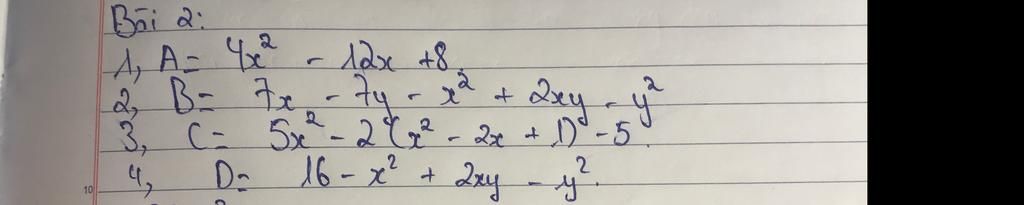 Bài 2:
1, A= 4x² - 12x +8.
2, B= 7x - 7y - x² + 2xy - y²
3, C= 5x² - 2(x² - 2x + 1) - 5.
4, D= 16 - x² + 2xy - y².
10